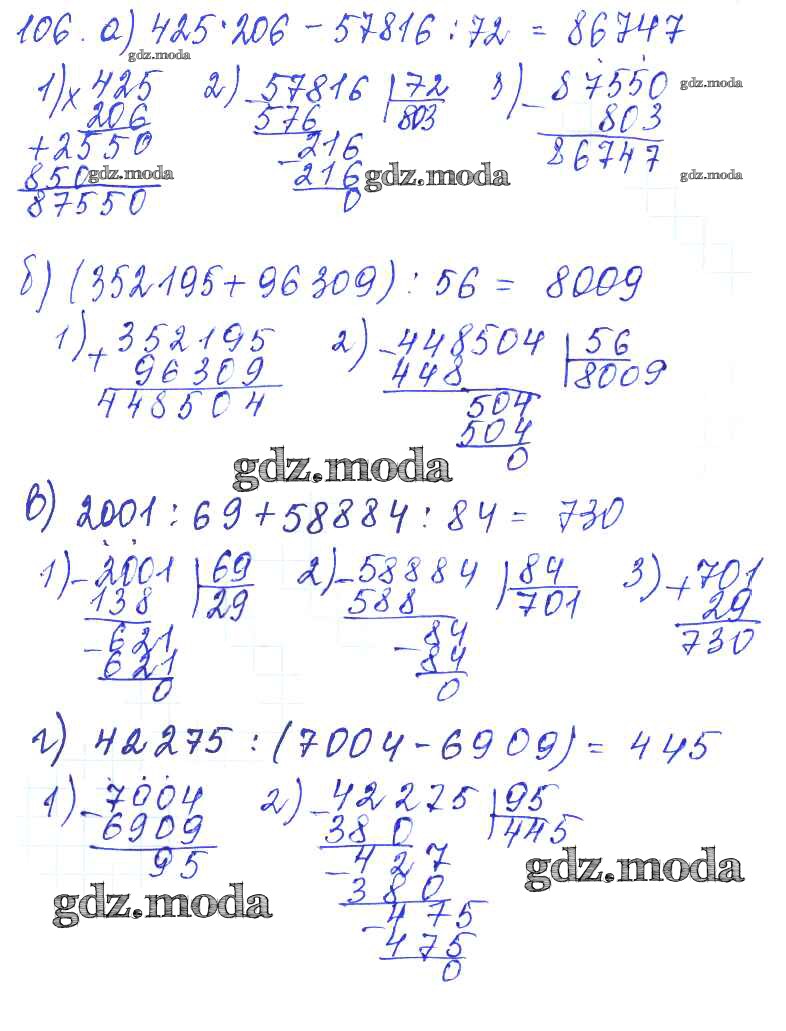 106. а) 425·206 - 57816 : 72 = 86747
gdz.moda
1) × 425 2) - 57816 72 3) - 87550 gdz.moda
206 576 803 803
+ 2550 - 216 86747
850 gdz.moda 216 gdz.moda gdz.moda
87550 0
б) (352195 + 96309) : 56 = 8009
1) + 352195 2) - 448504 56
96309 448 8009
448504 504
504
0
gdz.moda
в) 2001 : 69 + 58884 : 84 = 730
1) - 2001 69 2) - 58884 84 3) + 701
138 29 588 701 29
- 621 - 84 730
621 84
0 0
г) 42275 : (7004 - 6909) = 445
1) - 7004 2) - 42275 95
6909 380 445
95 - 427
gdz.moda
380
gdz.moda
- 475
475
0